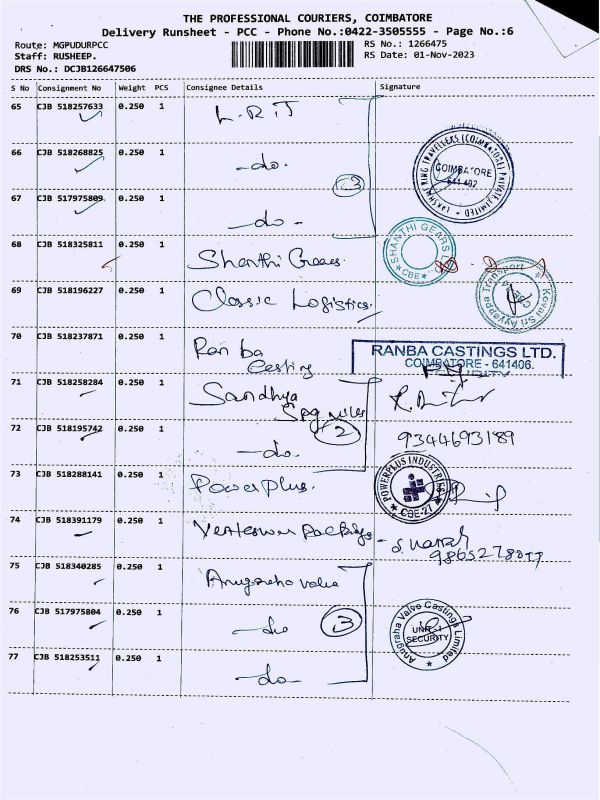 THE PROFESSIONAL COURIERS, COIMBATORE
Delivery Runsheet - PCC - Phone No.:0422-3505555 - Page No.:6
Route: MGPUDURPCC
RS No.: 1266475
Staff: RUSHEEP.
RS Date: 01-Nov-2023
DRS No.: DCJB126647506
S No Consignment No Weight PCS Consignee Details Signature
65 CJB 518257633 0.250 1 L.R.T
66 CJB 518268825 0.250 1 -do.
3
LAKSHMI RING TRAVELLERS (COIMBATORE) PRIVATE LIMITED
COIMBATORE
641 402
67 CJB 517975809 0.250 1 -do-
68 CJB 518325811 0.250 1 Shanthi Gears.
SHANTHI GEARS
CBE
69 CJB 518196227 0.250 1 Classic Logistics.
Kovai Sri Ayyappa Transport
70 CJB 518237871 0.250 1 Ranba
Casting
RANBA CASTINGS LTD.
COIMBATORE - 641406.
71 CJB 518258284 0.250 1 Sandhya
Spg mills
72 CJB 518195742 0.250 1 -do.
2
9344693189
73 CJB 518288141 0.250 1 Powerplus.
POWERPLUS INDUSTRIES
CBE-21
74 CJB 518391179 0.250 1 Packings
75 CJB 518340285 0.250 1 Anugraha valve
76 CJB 517975804 0.250 1 -do
3
Anugraha Valve Castings Limited
UNIT-I
SECURITY
77 CJB 518253511 0.250 1 -do-